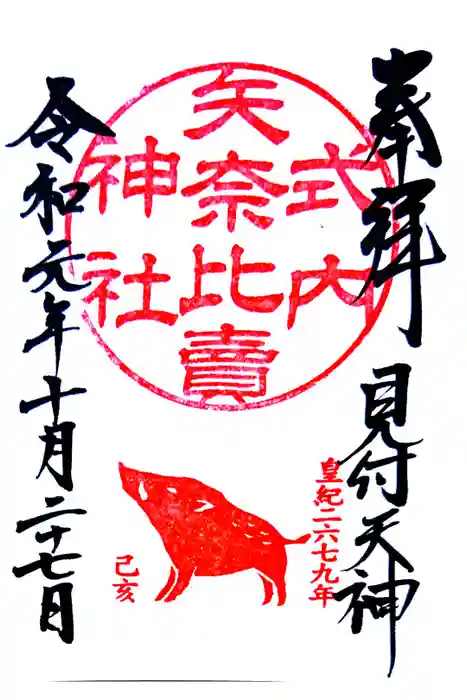 奉拝
見付天神
式内
矢奈比賣
神社
皇紀二六七九年
己亥
令和元年十月二十七日